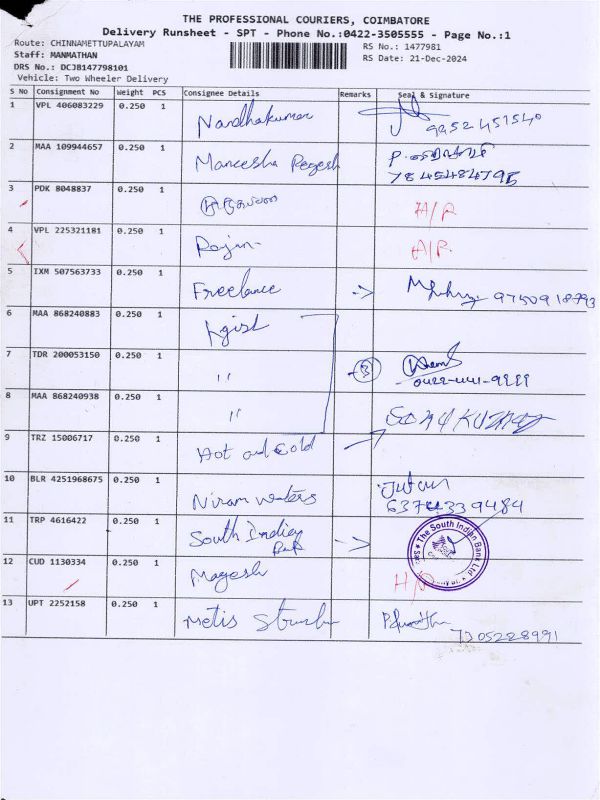 THE PROFESSIONAL COURIERS, COIMBATORE
Delivery Runsheet - SPT - Phone No.:0422-3505555 - Page No.:1
Route: CHINNAMETTUPALAYAM RS No.: 1477981
Staff: MANMATHAN RS Date: 21-Dec-2024
DRS No.: DCJB147798101
Vehicle: Two Wheeler Delivery
S No Consignment No Weight PCS Consignee Details Remarks Seal & Signature
1 VPL 406083229 0.250 1 Nandhakumar 9952451540
2 MAA 109944657 0.250 1 7845484795
3 PDK 8048837 0.250 1 A/R
4 VPL 225321181 0.250 1 Rajan A/R
5 IXM 507563733 0.250 1 Freelance 9750918793
6 MAA 868240883 0.250 1
7 TDR 200053150 0.250 1 " 3
8 MAA 868240938 0.250 1 "
9 TRZ 15006717 0.250 1 Hot and Cold
10 BLR 4251968675 0.250 1 Niram waters
11 TRP 4616422 0.250 1 South Indian Bank The South Indian Bank Ltd
12 CUD 1130334 0.250 1 Magesh
13 UPT 2252158 0.250 1 Metis 7305228991